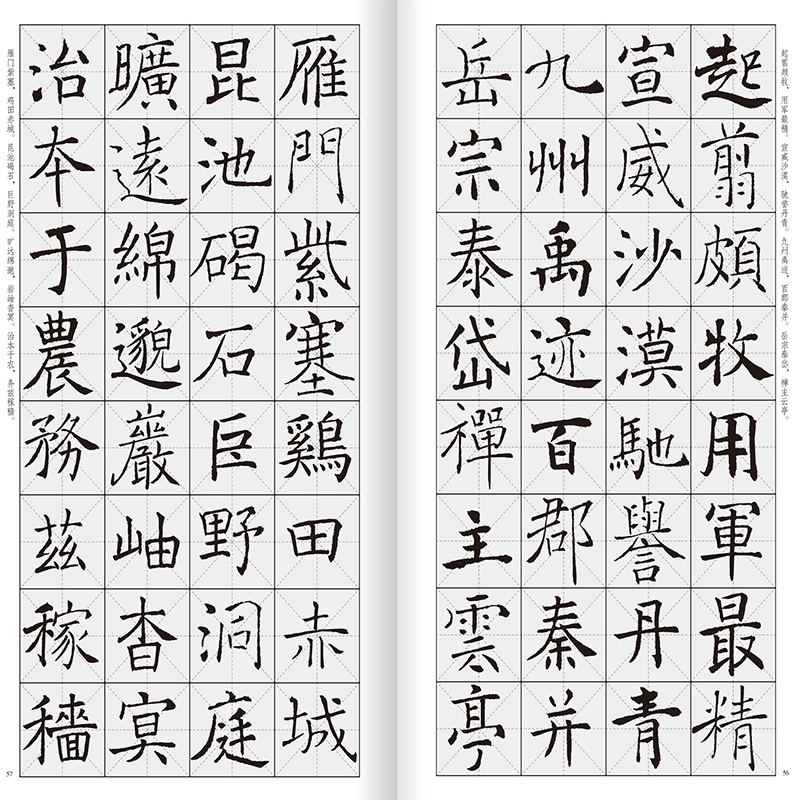 起翦颇牧，用军最精。宣威沙漠，驰誉丹青。九州禹迹，百郡秦并。岳宗泰岱，禅主云亭。
起翦頗牧用軍最精
宣威沙漠馳譽丹青
九州禹迹百郡秦并
岳宗泰岱禪主雲亭
56
雁門紫塞鷄田赤城
昆池碣石巨野洞庭
曠遠綿邈巖岫杳冥
治本于農務茲稼穡
雁门紫塞，鸡田赤城。昆池碣石，巨野洞庭。旷远绵邈，岩岫杳冥。治本于农，务兹稼穑。
57